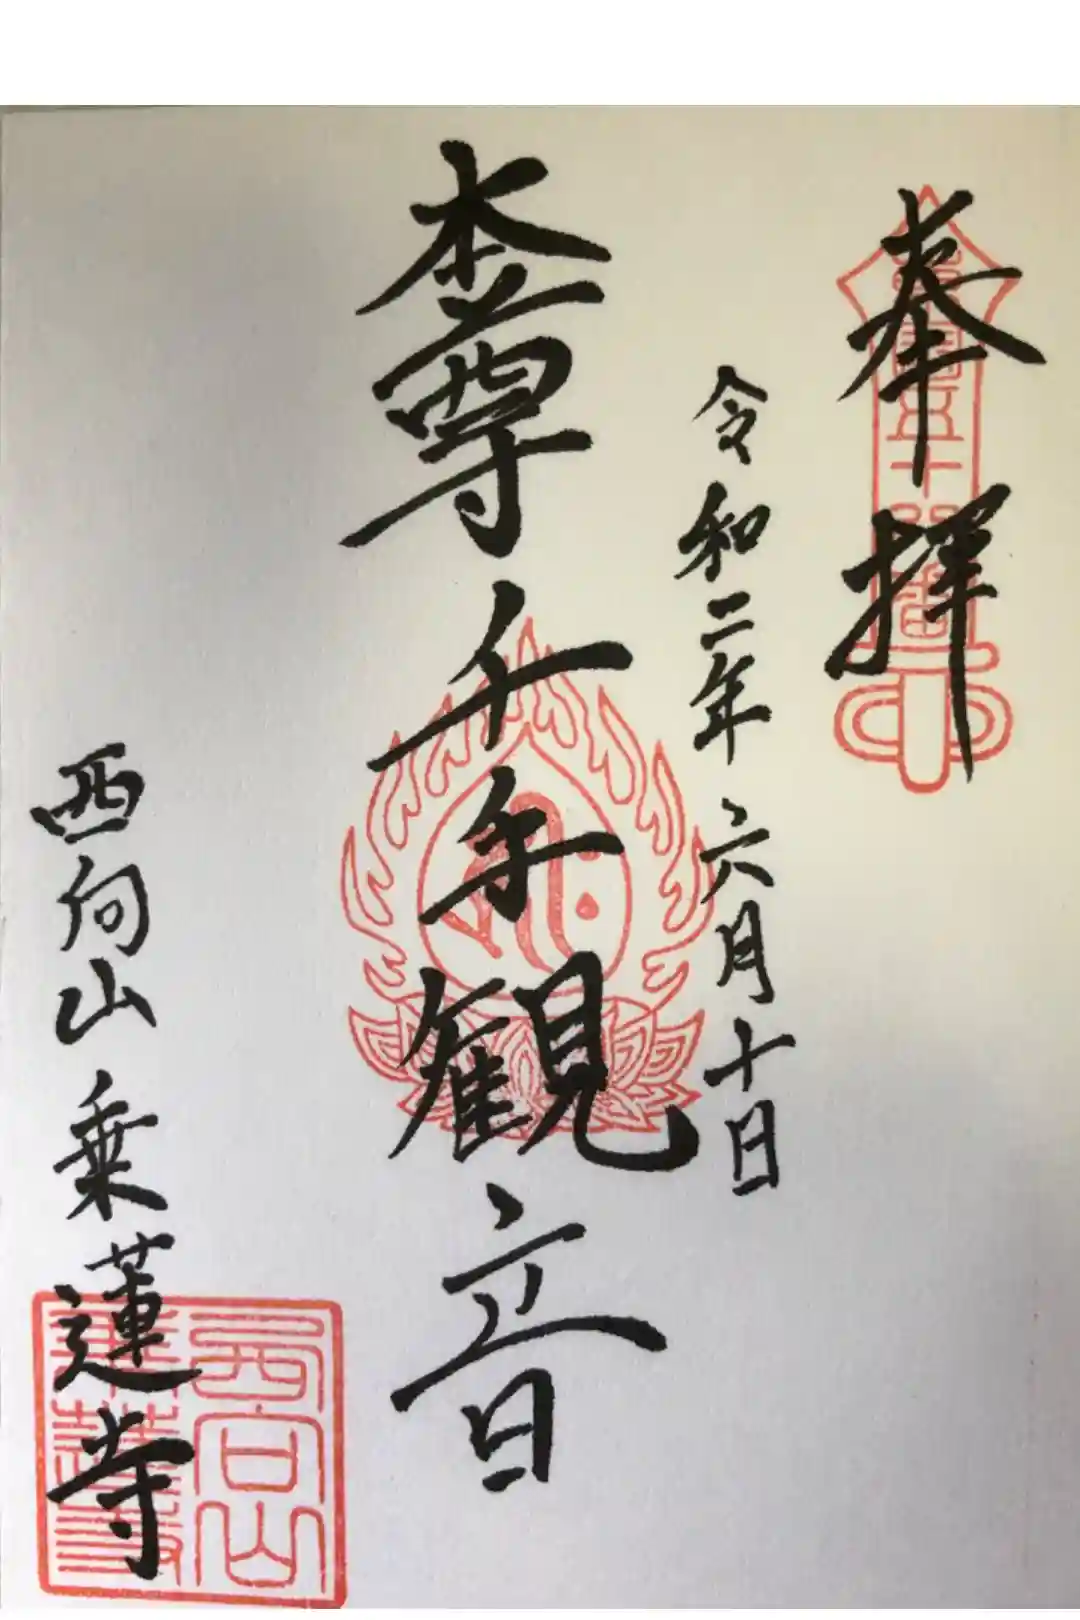 奉拝
令和二年 六月十日
本尊千手観音
西向山 乗蓮寺
西向山
乗蓮寺